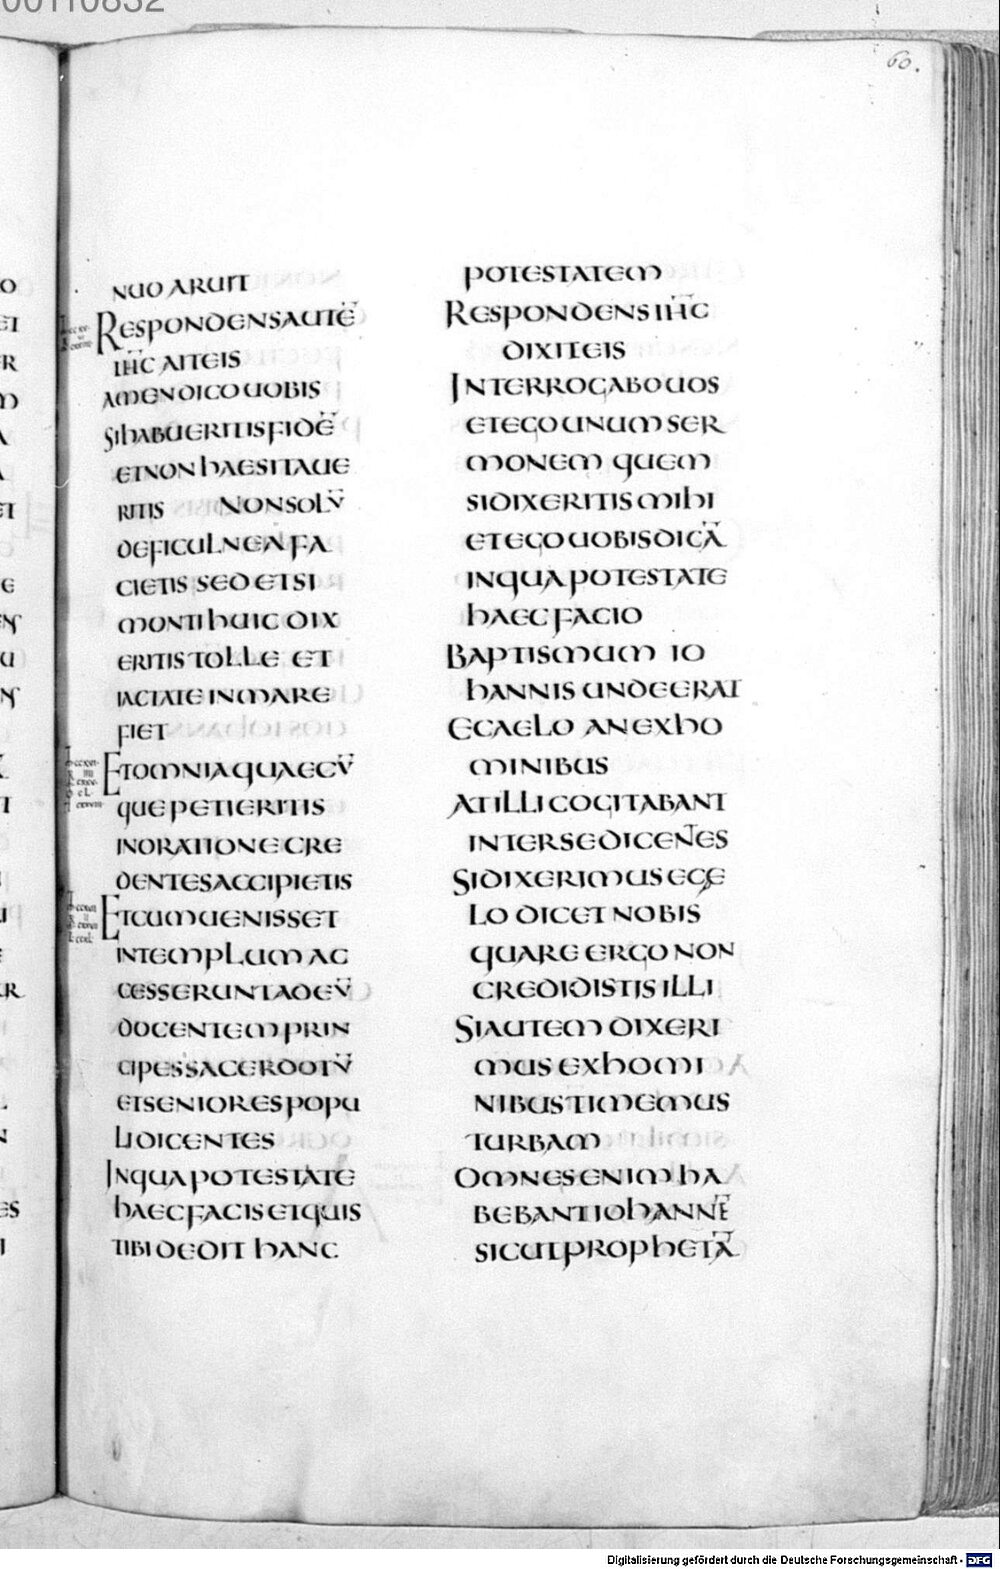 60.
NUO ARUIT
RESPONDENS AUTE̅
IH̅C AIT EIS
AMEN DICO UOBIS
SI HABUERITIS FIDE̅
ET NON HAESITAUE
RITIS NON SOLU̅
DE FICULNEA FA
CIETIS SED ET SI
MONTI HUIC DIX
ERITIS TOLLE ET
IACTATE IN MARE
FIET
ET OMNIA QUAECU̅
QUE PETIERITIS
IN ORATIONE CRE
DENTES ACCIPIETIS
ET CUM UENISSET
IN TEMPLUM AC
CESSERUNT AD EU̅
DOCENTEM PRIN
CIPES SACERDOTU̅
ET SENIORES POPU
LI DICENTES
IN QUA POTESTATE
HAEC FACIS ET QUIS
TIBI DEDIT HANC
POTESTATEM
RESPONDENS IH̅C
DIXIT EIS
INTERROGABO UOS
ET EGO UNUM SER
MONEM QUEM
SI DIXERITIS MIHI
ET EGO UOBIS DICA̅
IN QUA POTESTATE
HAEC FACIO
BAPTISMUM IO
HANNIS UNDE ERAT
E CAELO AN EX HO
MINIBUS
AT ILLI COGITABANT
INTER SE DICEN̅ES
SI DIXERIMUS E CAE
LO DICET NOBIS
QUARE ERGO NON
CREDIDISTIS ILLI
SI AUTEM DIXERI
MUS EX HOMI
NIBUS TIMEMUS
TURBAM
OMNES ENIM HA
BEBANT IOHANNE̅
SICUT PROPHETA̅
Digitalisierung gefördert durch die Deutsche Forschungsgemeinschaft - DFG